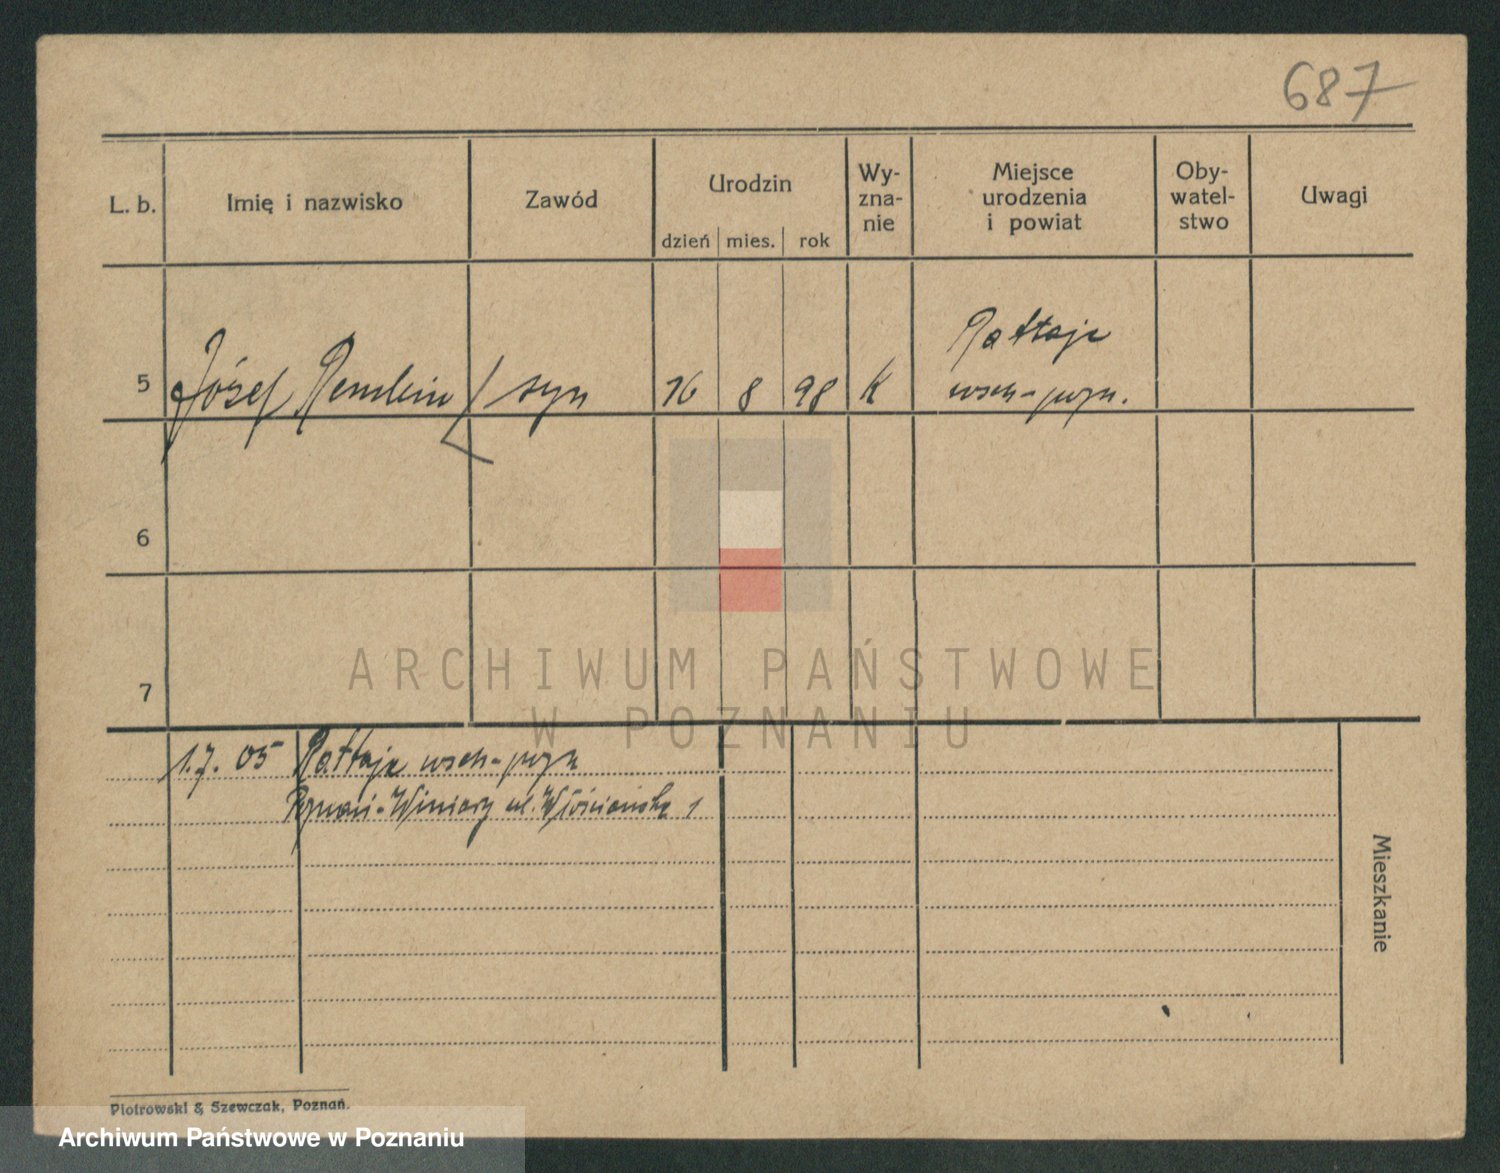 687
L. b.
Imię i nazwisko
Zawód
Urodzin
dzień
mies.
rok
Wy-
zna-
nie
Miejsce
urodzenia
i powiat
Oby-
watel-
stwo
Uwagi
Rattaje
5 Józef Remlein syn 16 8 98 K wsch-pozn.
6
7
1.7. 05 Rattaje wsch-pozn
Poznań-Winiary ul. Włościańska 1
Mieszkanie
Piotrowski & Szewczak, Poznań.
ARCHIWUM PAŃSTWOWE
W POZNANIU
Archiwum Państwowe w Poznaniu